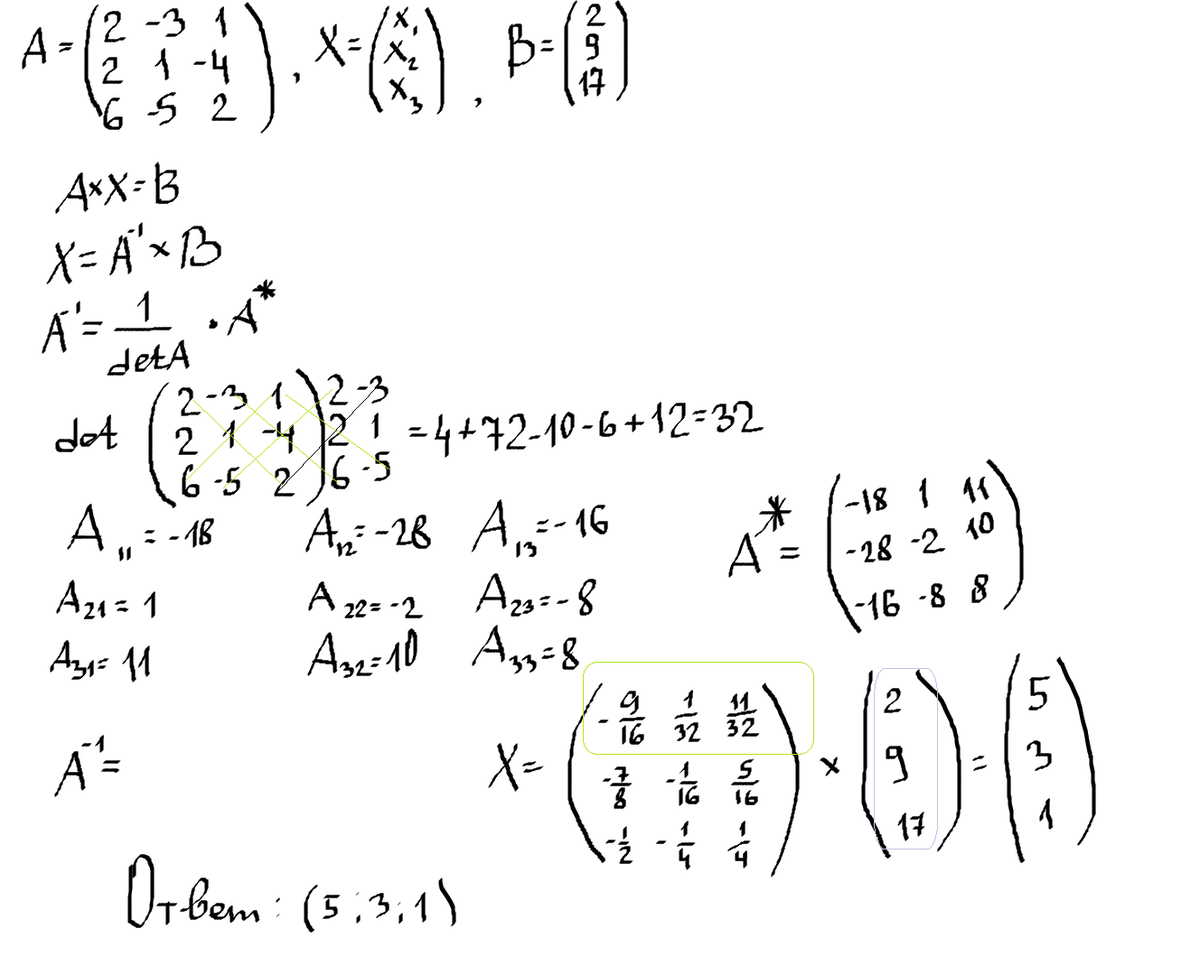 A = (2 -3 1; 2 1 -4; 6 -5 2), X = (x₁; x₂; x₃), B = (2; 9; 17)
A×X=B
X=A⁻¹×B
A⁻¹= 1/detA · A*
det (2 -3 1; 2 1 -4; 6 -5 2) 2 -3; 2 1; 6 -5 =4+72-10-6+12=32
A₁₁=-18 A₁₂=-28 A₁₃=-16
A₂₁=1 A₂₂=-2 A₂₃=-8
A₃₁=11 A₃₂=10 A₃₃=8
A*= (-18 1 11; -28 -2 10; -16 -8 8)
A⁻¹=
X= (-9/16 1/32 11/32; -7/8 -1/16 5/16; -1/2 -1/4 1/4) × (2; 9; 17) = (5; 3; 1)
Ответ: (5;3;1)